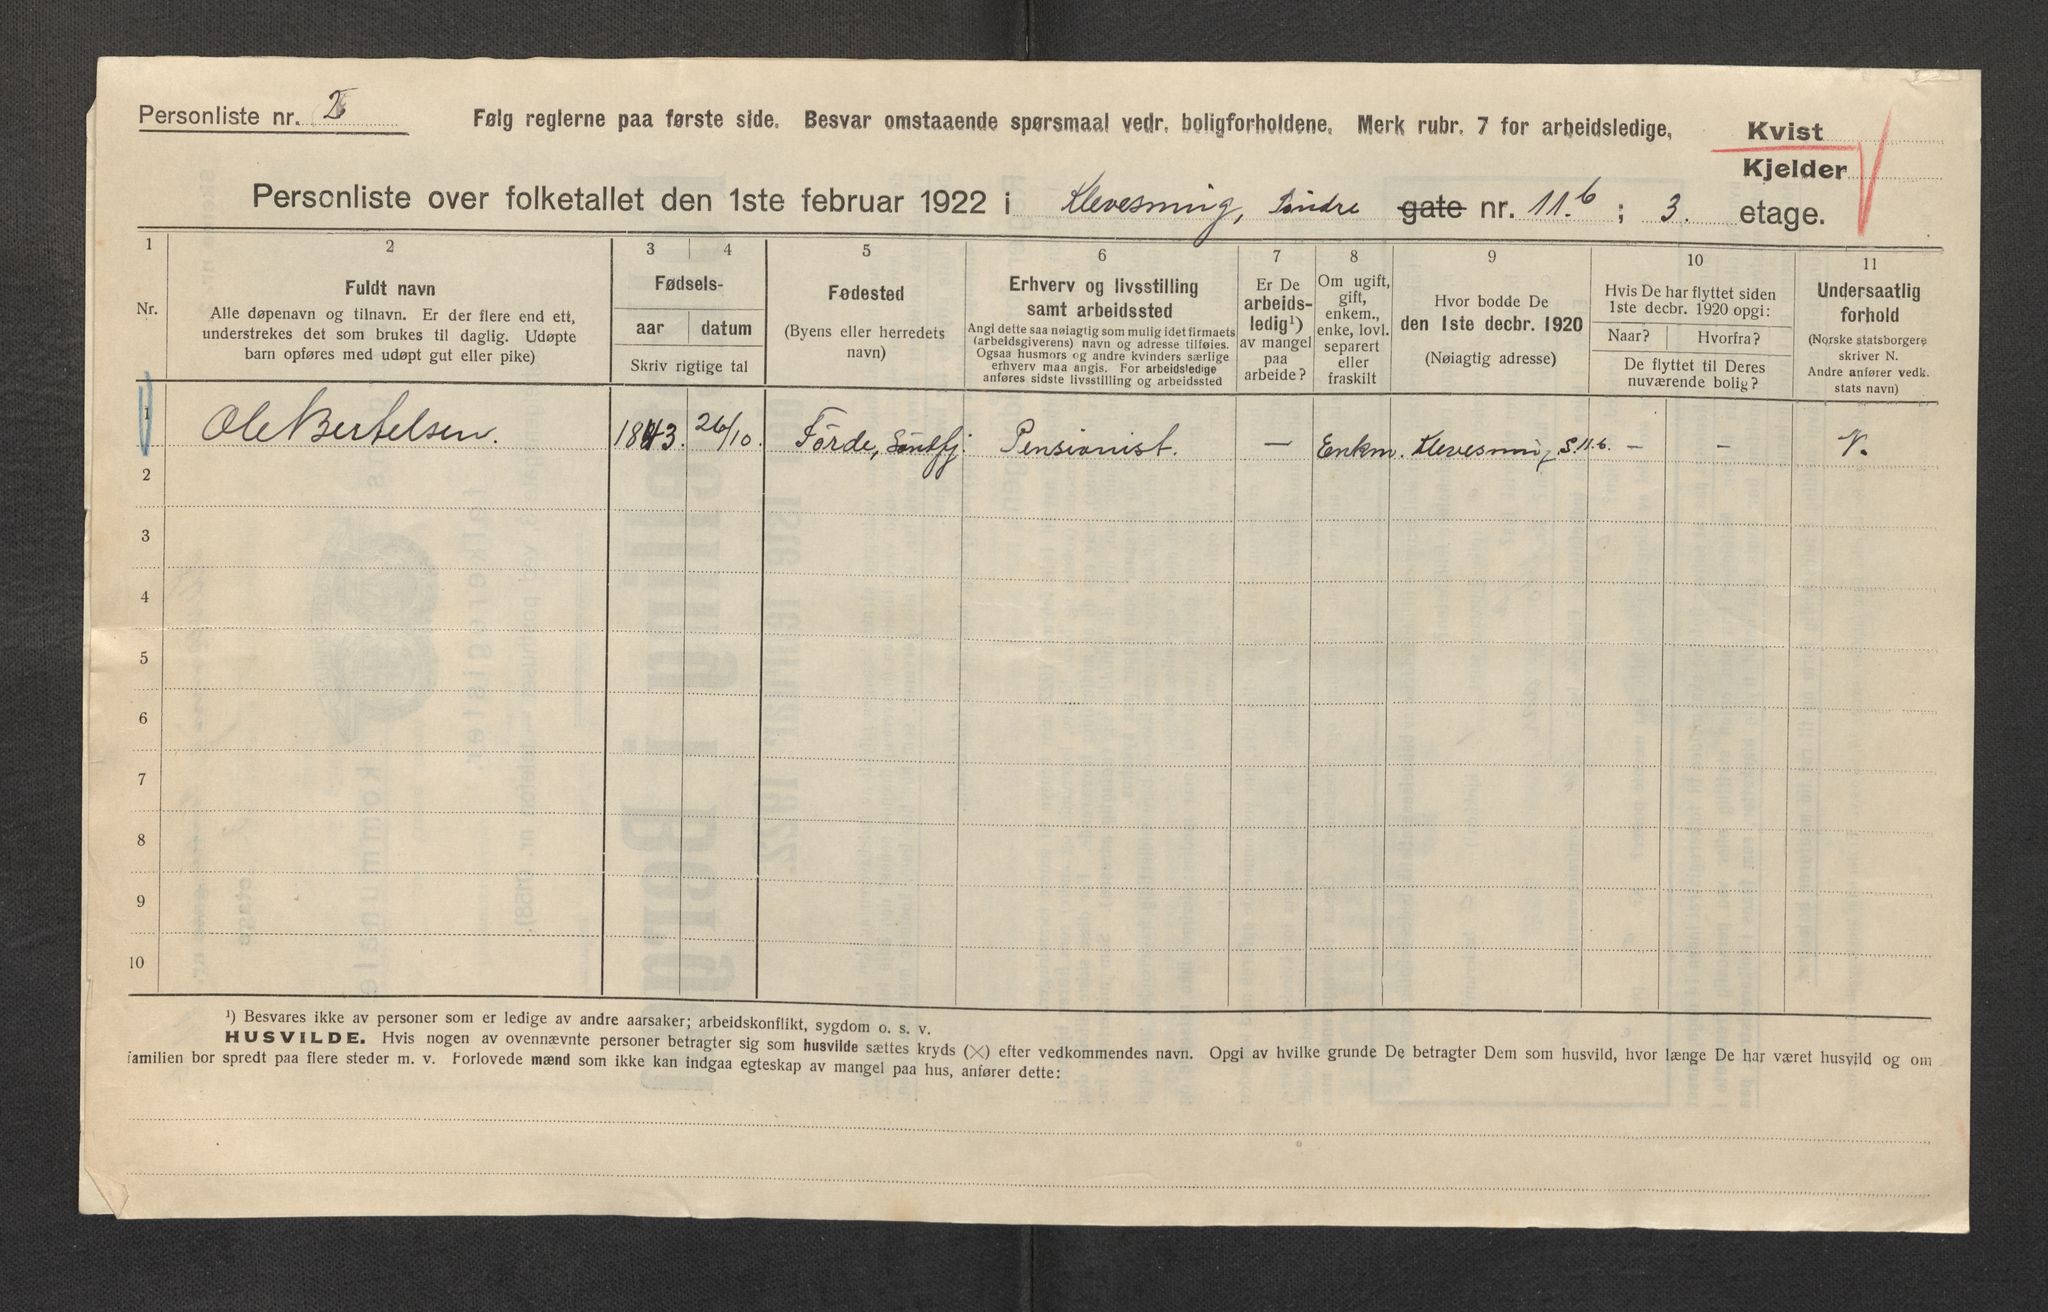 Personliste nr.
Følg reglerne paa første side. Besvar omstaaende spørsmaal vedr. boligforholdene. Merk rubr. 7 for arbeidsledige.
Kvist
Kjelder
Personliste over folketallet den 1ste februar 1922 i Klevesmug, Söndre gate nr. 11.b; 3. etage.
1 2 3 4 5 6 7 8 9 10 11
Nr.
Fuldt navn
Alle døpenavn og tilnavn. Er der flere end ett,
understrekes det som brukes til daglig. Udøpte
barn opføres med udøpt gut eller pike)
Fødsels-
aar datum
Skriv rigtige tal
Fødested
(Byens eller herredets
navn)
Erhverv og livsstilling
samt arbeidssted
Angi dette saa nøiagtig som mulig idet firmaets
(arbeidsgiverens) navn og adresse tilføies.
Ogsaa husmors og andre kvinders særlige
erhverv maa angis. For arbeidsledige
anføres sidste livsstilling og arbeidssted
Er De
arbeids-
ledig¹)
av mangel
paa
arbeide?
Om ugift,
gift,
enkem.,
enke, lovl.
separert
eller
fraskilt
Hvor bodde De
den 1ste decbr. 1920
(Nøiagtig adresse)
Hvis De har flyttet siden
1ste decbr. 1920 opgi:
Naar? Hvorfra?
De flyttet til Deres
nuværende bolig?
Undersaatlig
forhold
(Norske statsborgere
skriver N.
Andre anfører vedk.
stats navn)
1 Ole Bertelsen. 1843. 26/10. Förde, Söndfj. Pensionist. — Enkm. Klevesmug, S. 11.b. — — N.
2
3
4
5
6
7
8
9
10
¹) Besvares ikke av personer som er ledige av andre aarsaker; arbeidskonflikt, sygdom o. s. v.
HUSVILDE. Hvis nogen av ovennævnte personer betragter sig som husvilde sættes kryds (×) efter vedkommendes navn. Opgi av hvilke grunde De betragter Dem som husvild, hvor længe De har været husvild og om
familien bor spredt paa flere steder m. v. Forlovede mænd som ikke kan indgaa egteskap av mangel paa hus, anfører dette: